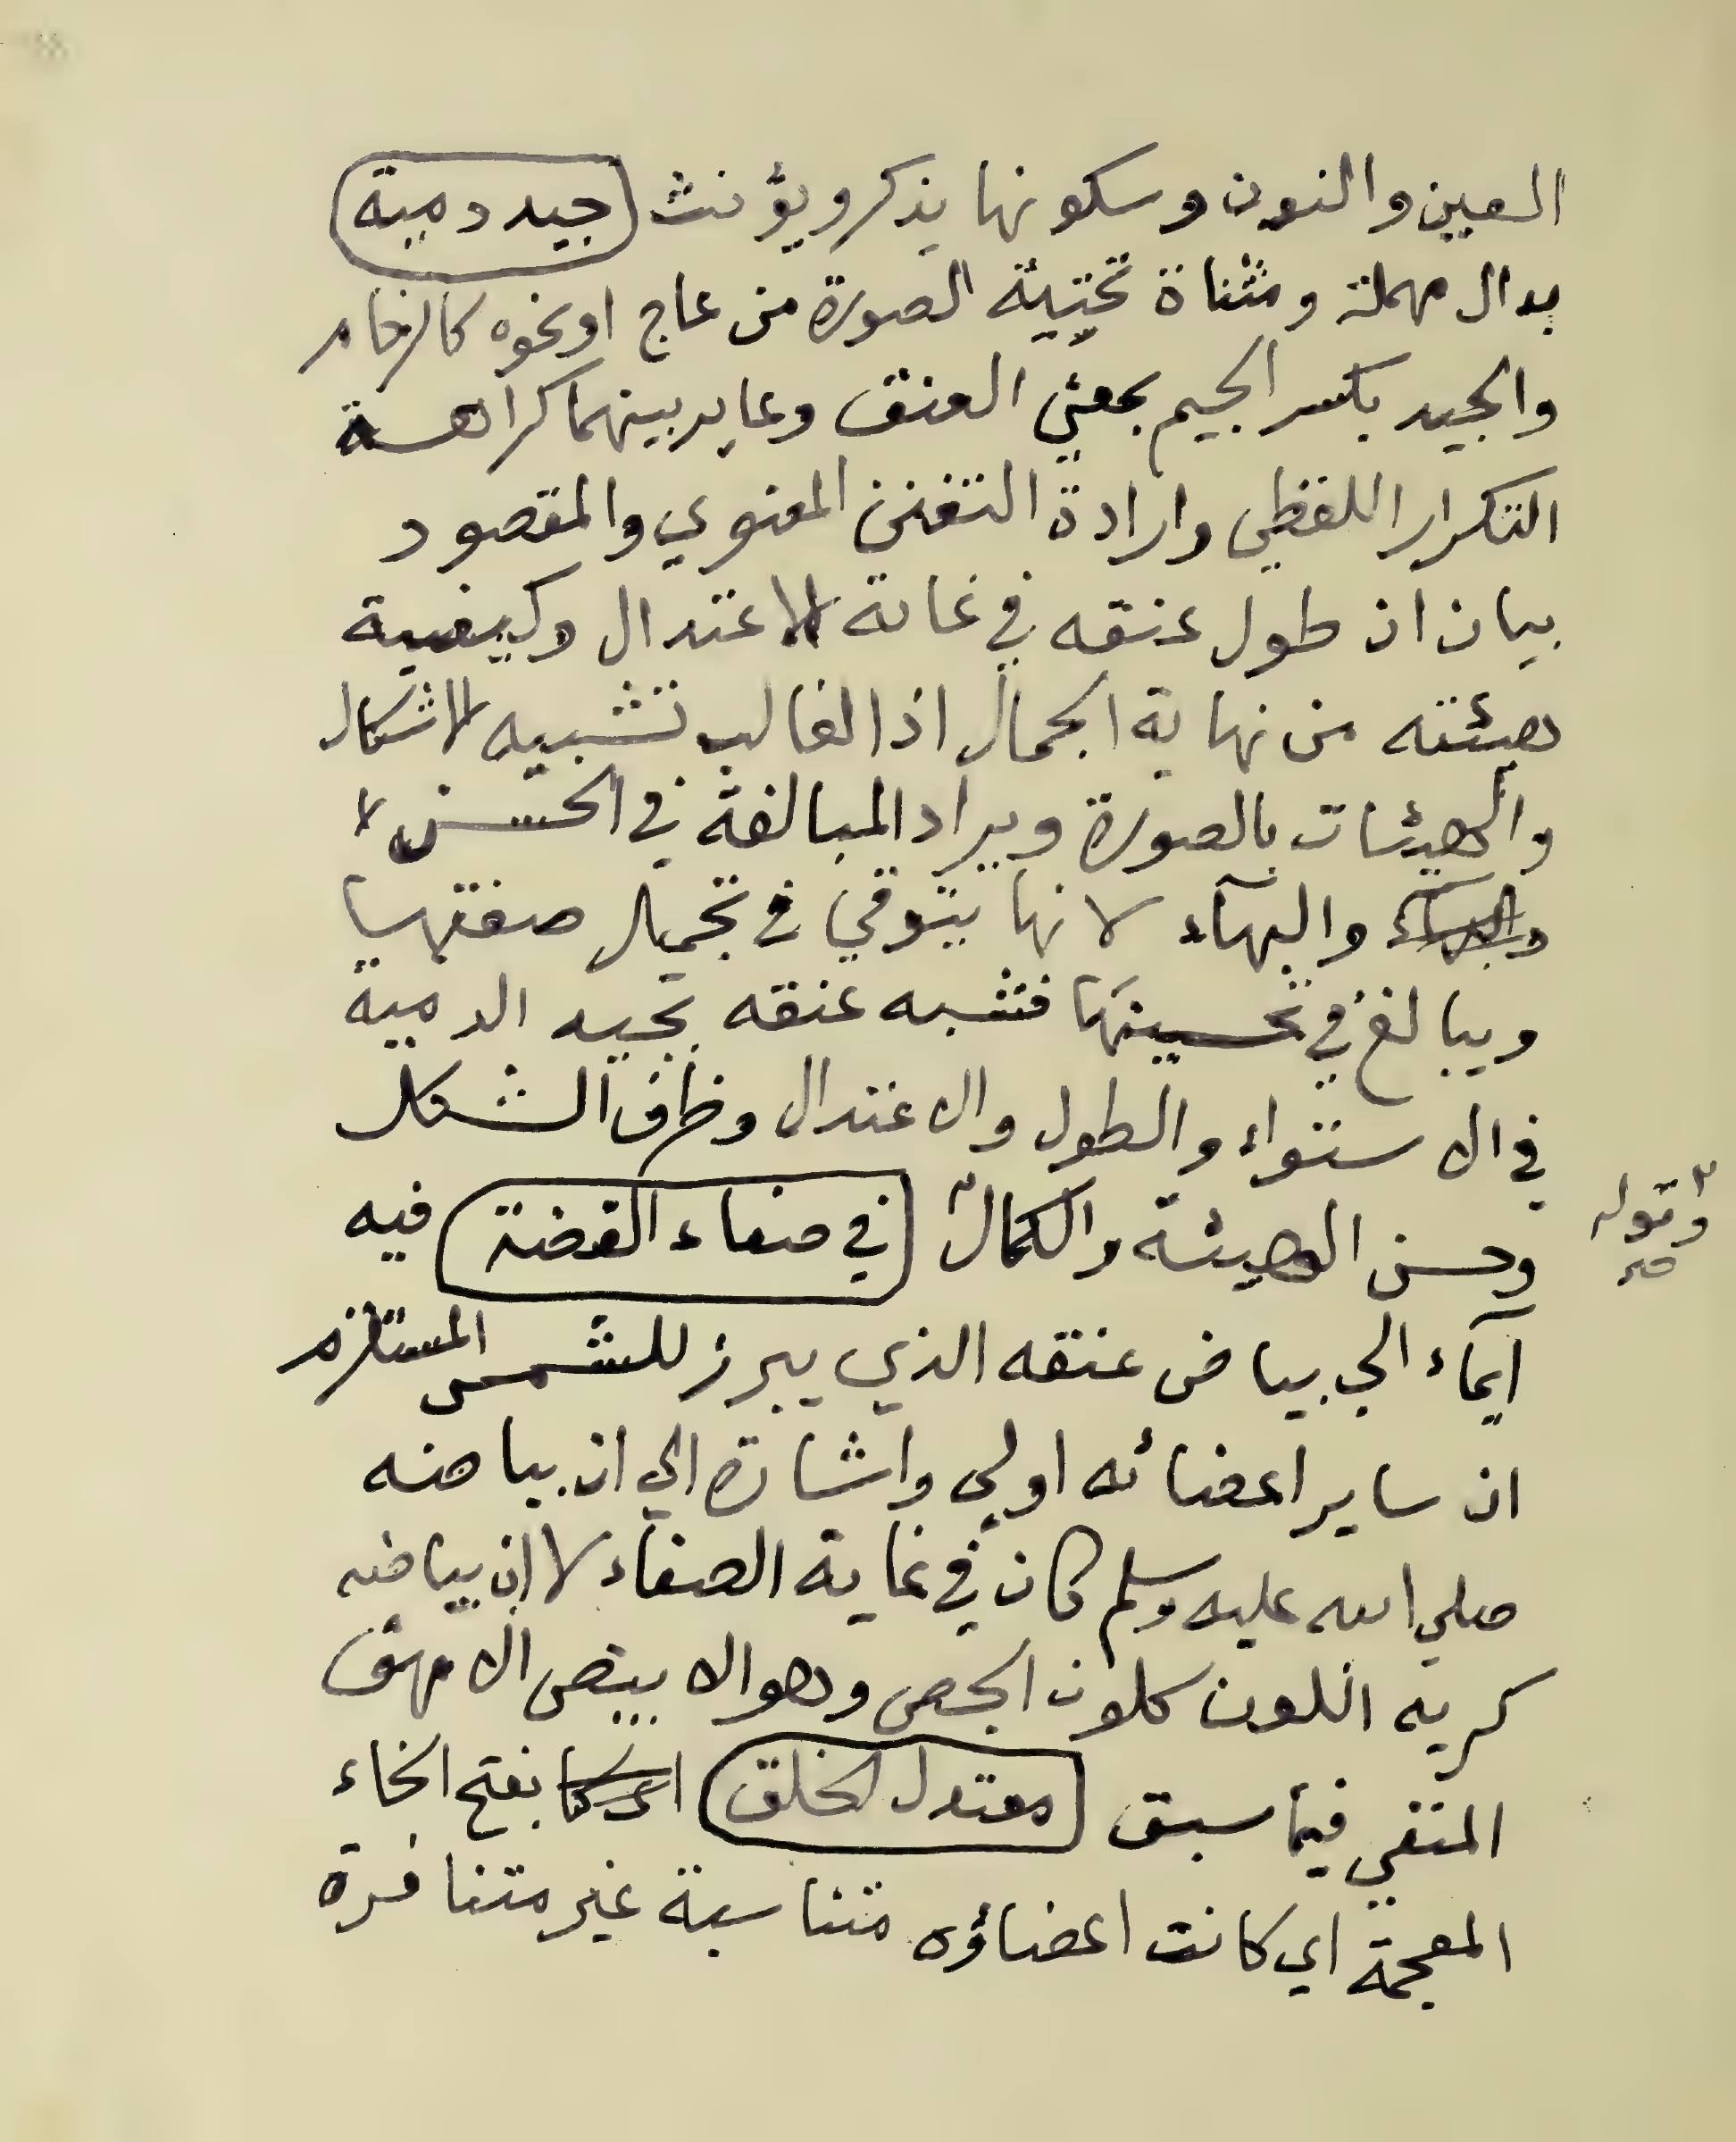 العين والنون وسكونها يذكر ويؤنث (جيد دمية)
بدال مهملة ومثناة تحتيئة الصورة من عاج او نحوه كالرخام
والجيد بكسر الجيم بمعني العنق وغاير بينهما كراهة
التكرار اللفظي وارادة التفنن المعنوي والمقصود
بيان ان طول عنقه في غاية الاعتدال وكيفية
هيئته من نهاية الجمال اذ الغالب تشبيه الاشكال
والهيئات بالصورة ويراد المبالغة في الحسن
والبهآء لانها يتوقي في تجميل صفتها
ويبالغ في تحسينها فتشبه عنقه بجيد الدمية
في الاستواء والطول والاعتدال وظرف الشكل
وحسن الهيئة والكمال (في صفاء الفضة) فيه
وقوله
صح
ايمآء الي بياض عنقه الذي يبرز للشمس المستلزم
ان ساير اعضائه اولي واشارة الي ان بياضه
صلي الله عليه وسلم كان في غاية الصفاء لا ان بياضه
كريه اللون كلون الجص وهو الابيض الامهق
المنفي فيما سبق (معتدل الخلق) بفتح الخاء
المعجمة اي كانت اعضاؤه متناسبة غير متنافرة